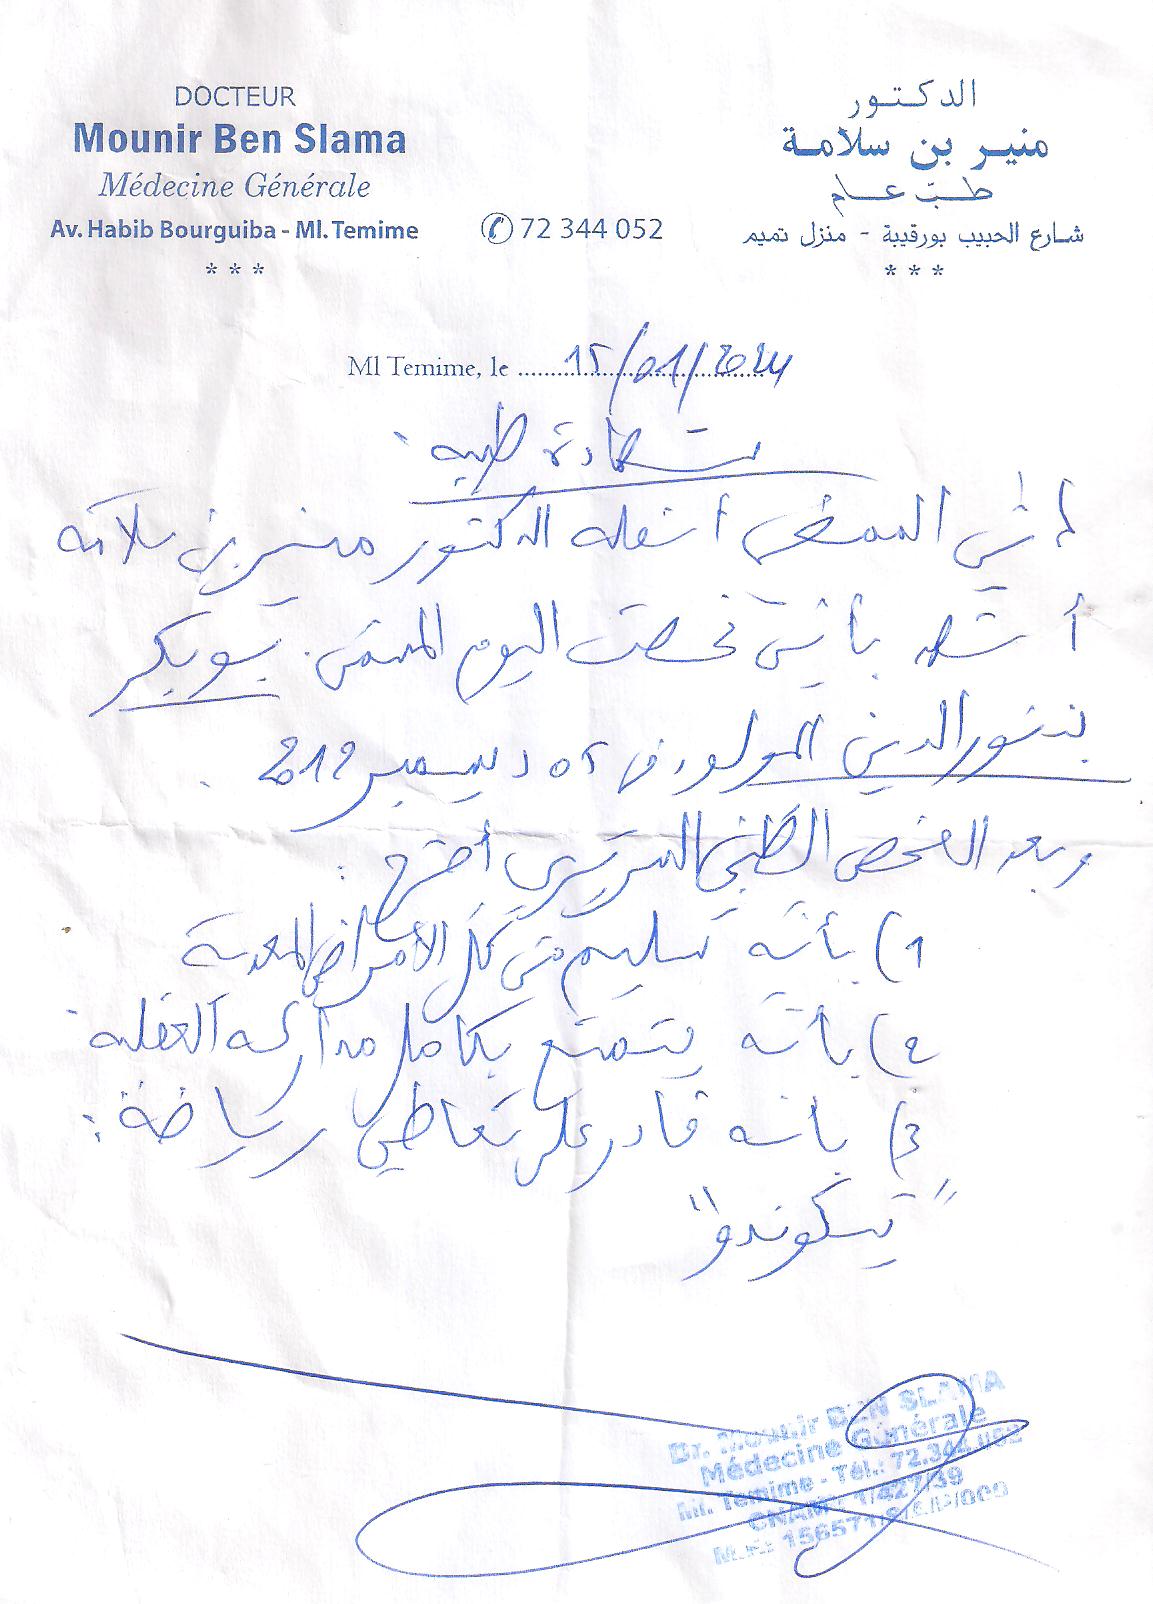 DOCTEUR
Mounir Ben Slama
Médecine Générale
Av. Habib Bourguiba - Ml. Temime
* * *
✆ 72 344 052
الدكتور
منير بن سلامة
طبّ عام
شارع الحبيب بورقيبة - منزل تميم
* * *
Ml Temime, le 15/01/2024
شهادة طبية
إني الممضي أسفله الدكتور منير بن سلامة
أشهد بأنني فحصت اليوم
بن نور الدين المولود في 05 ديسمبر 2012
وبعد الفحص الطبي السريري أصرح :
1) بأنه سليم من كل الأمراض المعدية
2) بأنه يتمتع بكامل مداركه العقلية
3) بأنه قادر على تعاطي رياضة :
Dr. Mounir BEN SLAMA
Médecine Générale
Ml. Temime - Tél.: 72.344.052
CNAM: 1/427/39